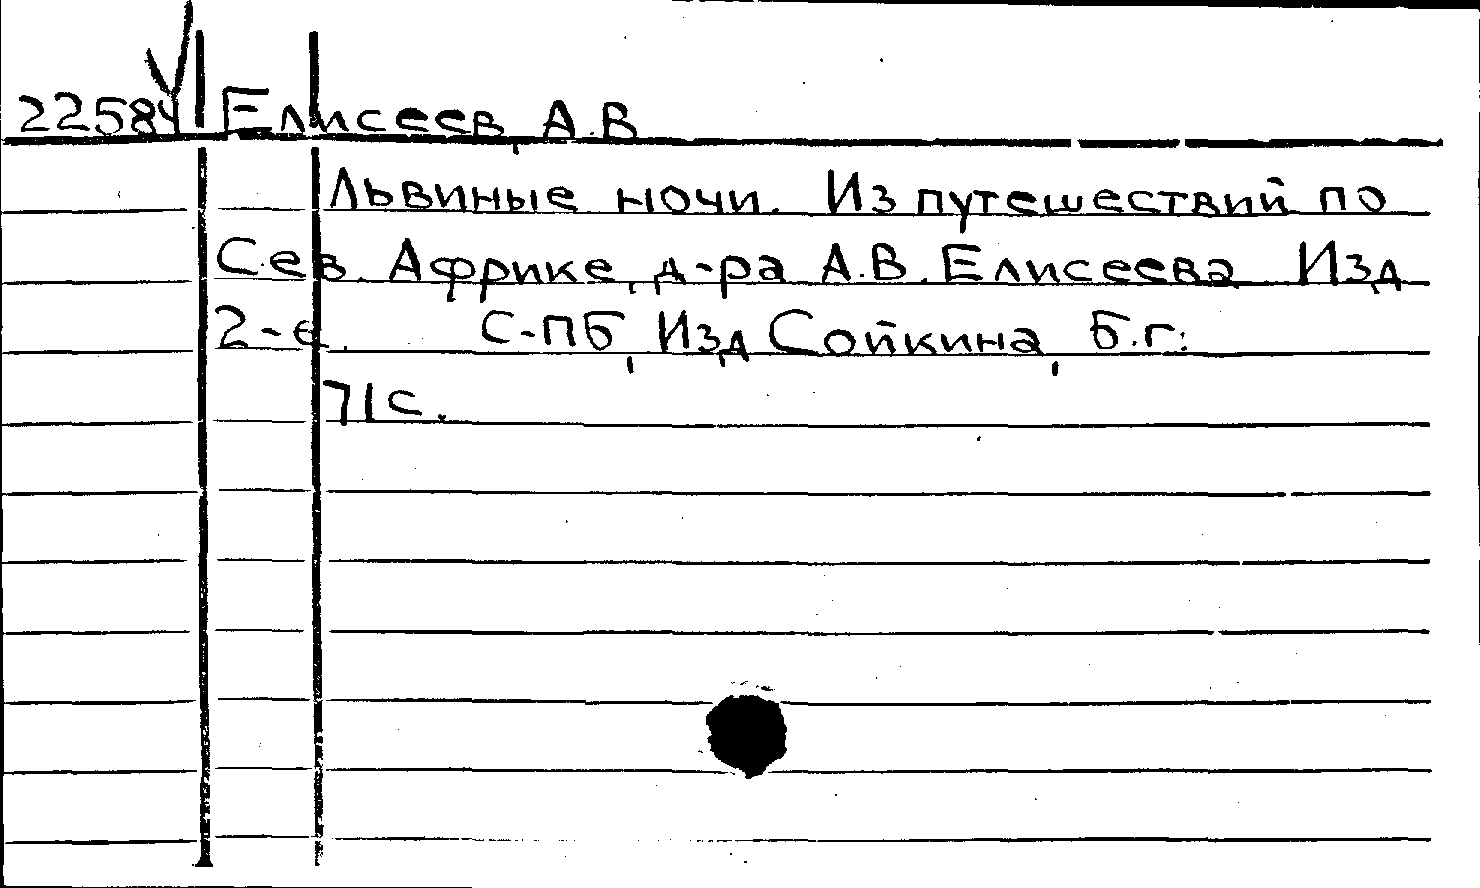 22584 Елисеев, А.В
Львиные ночи. Из путешествий по
Сев. Африке, д-ра А.В. Елисеева Изд
2-е. С-ПБ, Изд Сойкина, б.г.
71с.